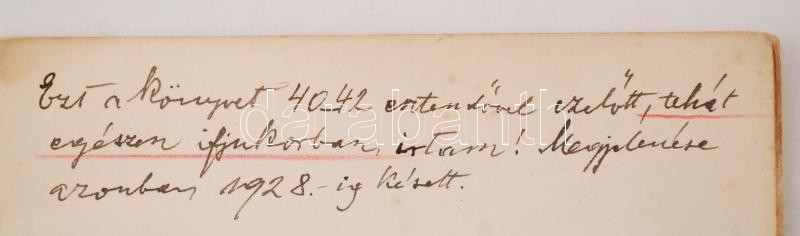 Ezt a könyvet 40.42 esztendővel ezelőtt, tehát
egészen ifjukorban, irtam! Megjelenése
azonban 1928.-ig késett.
databank